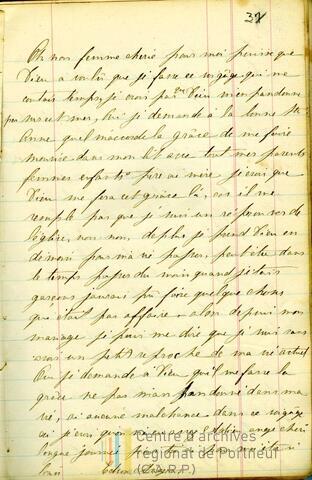 37
Oh non femme cherie pour moi pense que
Dieu a voulu que je fasse ce voyage qui me
contais temps, je crois par Dieu
et mer, lui je demande à la bonne Ste
Anne quel maccorde la grâce de me faire
mourire dans mon lit avec tout mes parents
femmes enfants père et mère je crois que
Dieu me fera cet grâce là, car il me
semble pas que je suis un réprouver de
l'église, non non, de plus je prend Dieu en
demoin pas ma vé passer, peut être dans
le temps passer du moin quand j'étais
garcons jaurais pu faire quelque chose
que était pas affaire alors depuis mon
mariage je puis me dire que je suis sans
un petit reproche de ma vé actuel
Oui je demande à Dieu qu'il me fasse la
grâce ne pas mandonné dans ma
vé, ai aucune malchance dans ce voyage
ai ange cheri
longue journée
Centre d'archives
régional de Portneuf
(C.A.R.P.)